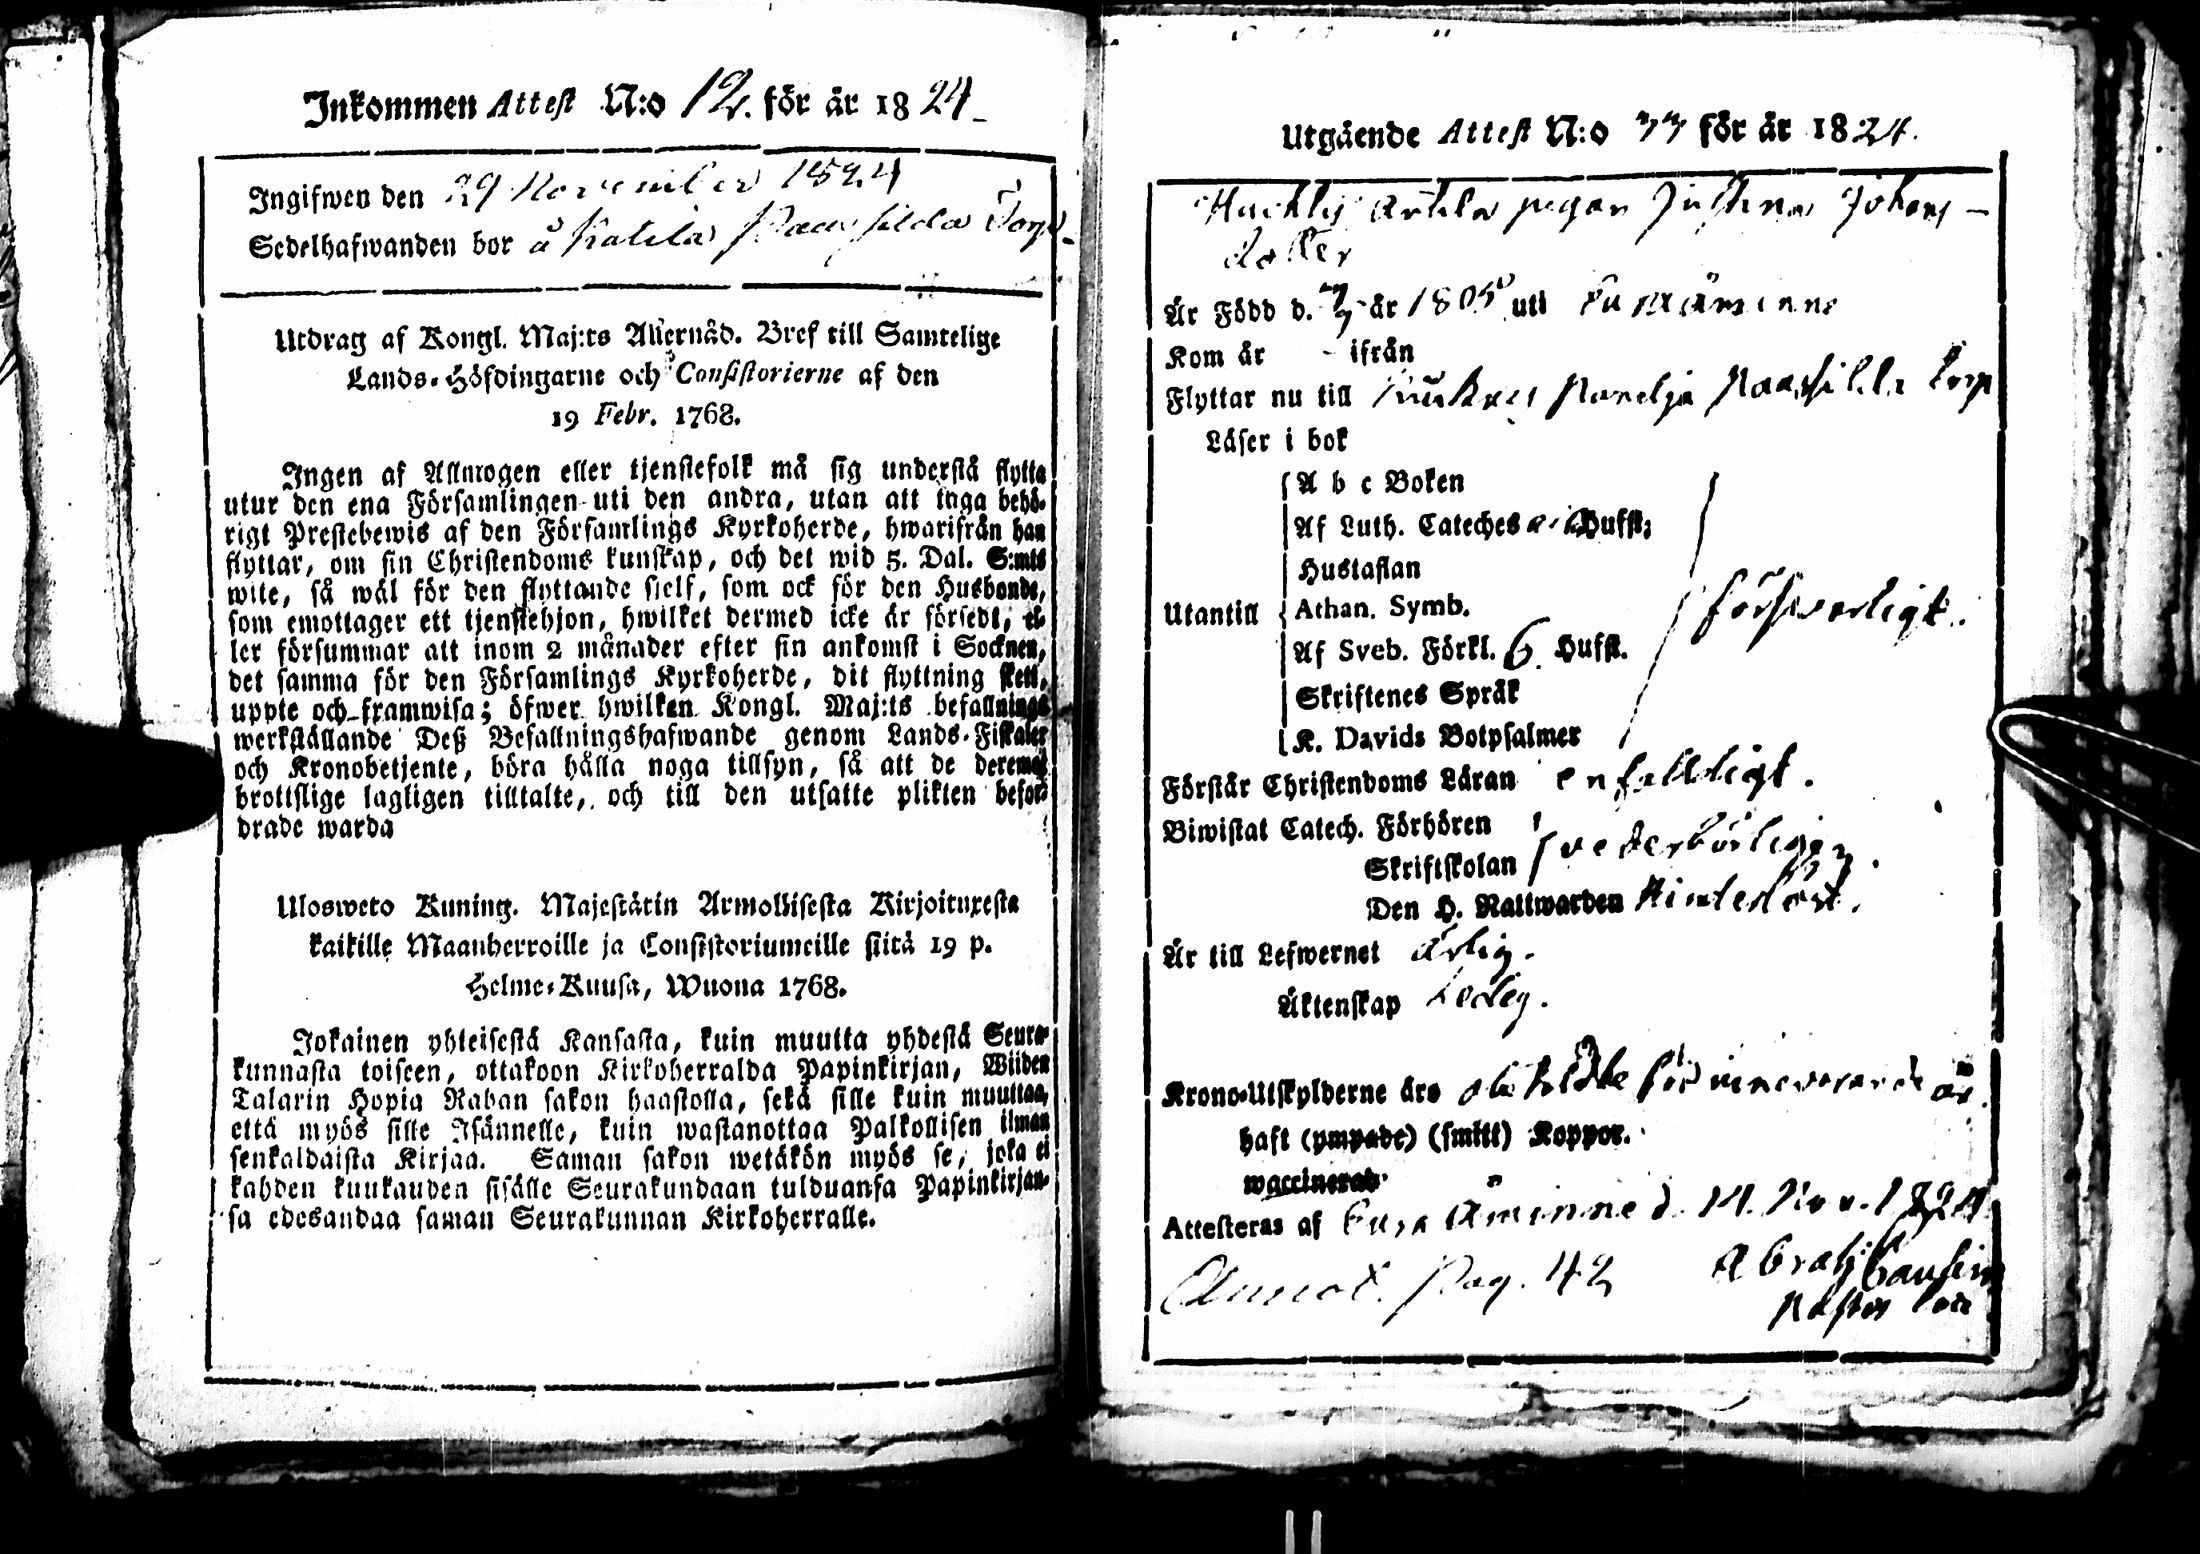 Inkommen Attest N:o 12. för år 1824
Ingifwen den 29 November 1824
Sedelhafwanden bor å Torp
Utdrag af Kongl. Maj:ts Allernåd. Bref till Samtelige
Lands-Höfdingarne och Consistorierne af den
19 Febr. 1768.
Ingen af Allmogen eller tjenstefolk må sig understå flytta
utur den ena Församlingen uti den andra, utan att taga behö-
rigt Prestebewis af den Församlings Kyrkoherde, hwarifrån han
flyttar, om sin Christendoms kunskap, och det wid 5. Dal. S:mts
wite, så wäl för den flyttande sielf, som ock för den Husbonde,
som emottager ett tjenstehjon, hwilket dermed icke är försedt, el-
ler försummar att inom 2 månader efter sin ankomst i Socknen,
det samma för den Församlings Kyrkoherde, dit flyttning skett,
uppte och framwisa; öfwer hwilken Kongl. Maj:ts befallnings
werkställande Deß Befallningshafwande genom Lands-Fiskaler
och Kronobetjente, böra hålla noga tillsyn, så att de deremot
brottslige lagligen tilltalte, och till den utsatte plikten befor-
drade warda
Ulosweto Kuning. Majestätin Armollisesta Kirjoituxesta
kaikille Maanherroille ja Consistoriumeille siitä 19 p.
Helme-Kuusa, Wuona 1768.
Jokainen yhteisestä Kansasta, kuin muutta yhdestä Seura-
kunnasta toiseen, ottakoon Kirkoherralda Papinkirjan, Wiiden
Talarin Hopia Rahan sakon haastolla, sekä sille kuin muuttaa,
että myös sille Isännelle, kuin wastanottaa Palkollisen ilman
senkaldaista Kirjaa. Saman sakon wetäkön myös se, joka ei
kahden kuukauden sisälle Seurakundaan tulduansa Papinkirjan-
sa edesandaa saman Seurakunnan Kirkoherralle.
Utgående Attest N:o 77 för år 1824.
pigan Justina Johans-
dotter
Är Född d. 7/7 år 1805 uti Eura Åminne
Kom år - ifrån
Flyttar nu till torp
Läser i bok
A b c Boken
Af Luth. Cateches Hufst:
Hustaflan
Utantill Athan. Symb. försvarligt.
Af Sveb. Förkl. 6. Hufst.
Skriftenes Språk
K. Davids Botpsalmer
Förstår Christendoms Läran enfaldigt.
Biwistat Catech. Förhören
Skriftskolan vederbörligen
Den H. Nattwarden
Är till Lefwernet ärlig.
Äktenskap Ledig.
Krono-Utskylderne äro för innevarande år.
haft (ympade) (smitt) Koppor.
waccinerad
Attesteras af Eura Åminne d. 14. Nov. 1824
Annot. Pag. 42